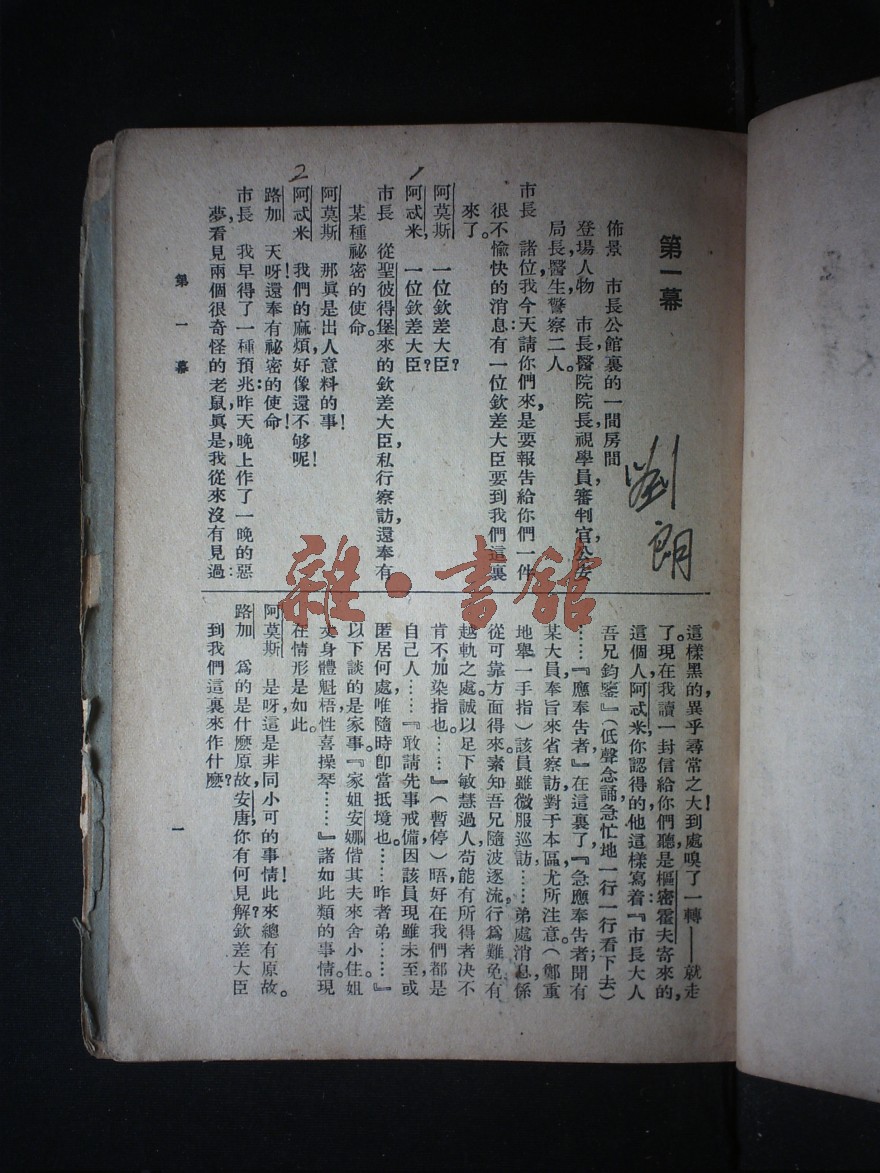 第一幕
佈景　市長公館裏的一間房間
登場人物　市長，醫院院長，視學員，審判官，公安
局長，醫生，警察二人。
市長　諸位，我今天請你們來，是要報告給你們一件
很不愉快的消息：有一位欽差大臣要到我們這裏
來了。
阿莫斯　一位欽差大臣？
阿忒米　一位欽差大臣？
市長　從聖彼得堡來的欽差大臣，私行察訪，還奉有
某種祕密的使命。
阿莫斯　那真是出人意料的事！
阿忒米　我們的麻煩，好像還不够呢！
路加　天呀！還奉有祕密的使命！
市長　我早得了一種預兆：昨天晚上作了一晚的惡
夢，看見兩個很奇怪的老鼠，真是，我從來沒有見過：
這樣黑的，異乎尋常之大！到處嗅了一轉——就走
了。現在我讀一封信給你們聽，是樞密霍夫寄來的，
這個人，阿忒米，你認得的。他這樣寫着：『市長大人
吾兄鈞鑒』（低聲念誦，急忙地一行一行看下去）
……『應奉告者』在這裏了，『急應奉告者，聞有
某大員奉旨來省察訪，對于本區尤所注意。（鄭重
地舉一手指）該員雖微服巡訪……弟處消息，係
從可靠方面得來。素知吾兄隨波逐流，行爲難免有
越軌之處。誠以足下敏慧過人，苟能有所得者，决不
肯不加染指也……』（暫停）唔，好在我們都是
自己人……『敢請先事戒備，因該員現雖未至，或
匿居何處，唯隨時卽當抵境也。……昨者弟……』
以下談的是家事。『家姐安娜偕其夫來舍小住，姐
夫身體魁梧，性喜操琴……』諸如此類的事情。現
在情形是如此。
阿莫斯　是呀，這是非同小可的事情！此來總有原故。
路加　爲的是什麽原故，安唐，你有何見解？欽差大臣
到我們這裏來作什麽？
第一幕
一
劉朗
1
2
雜·書館